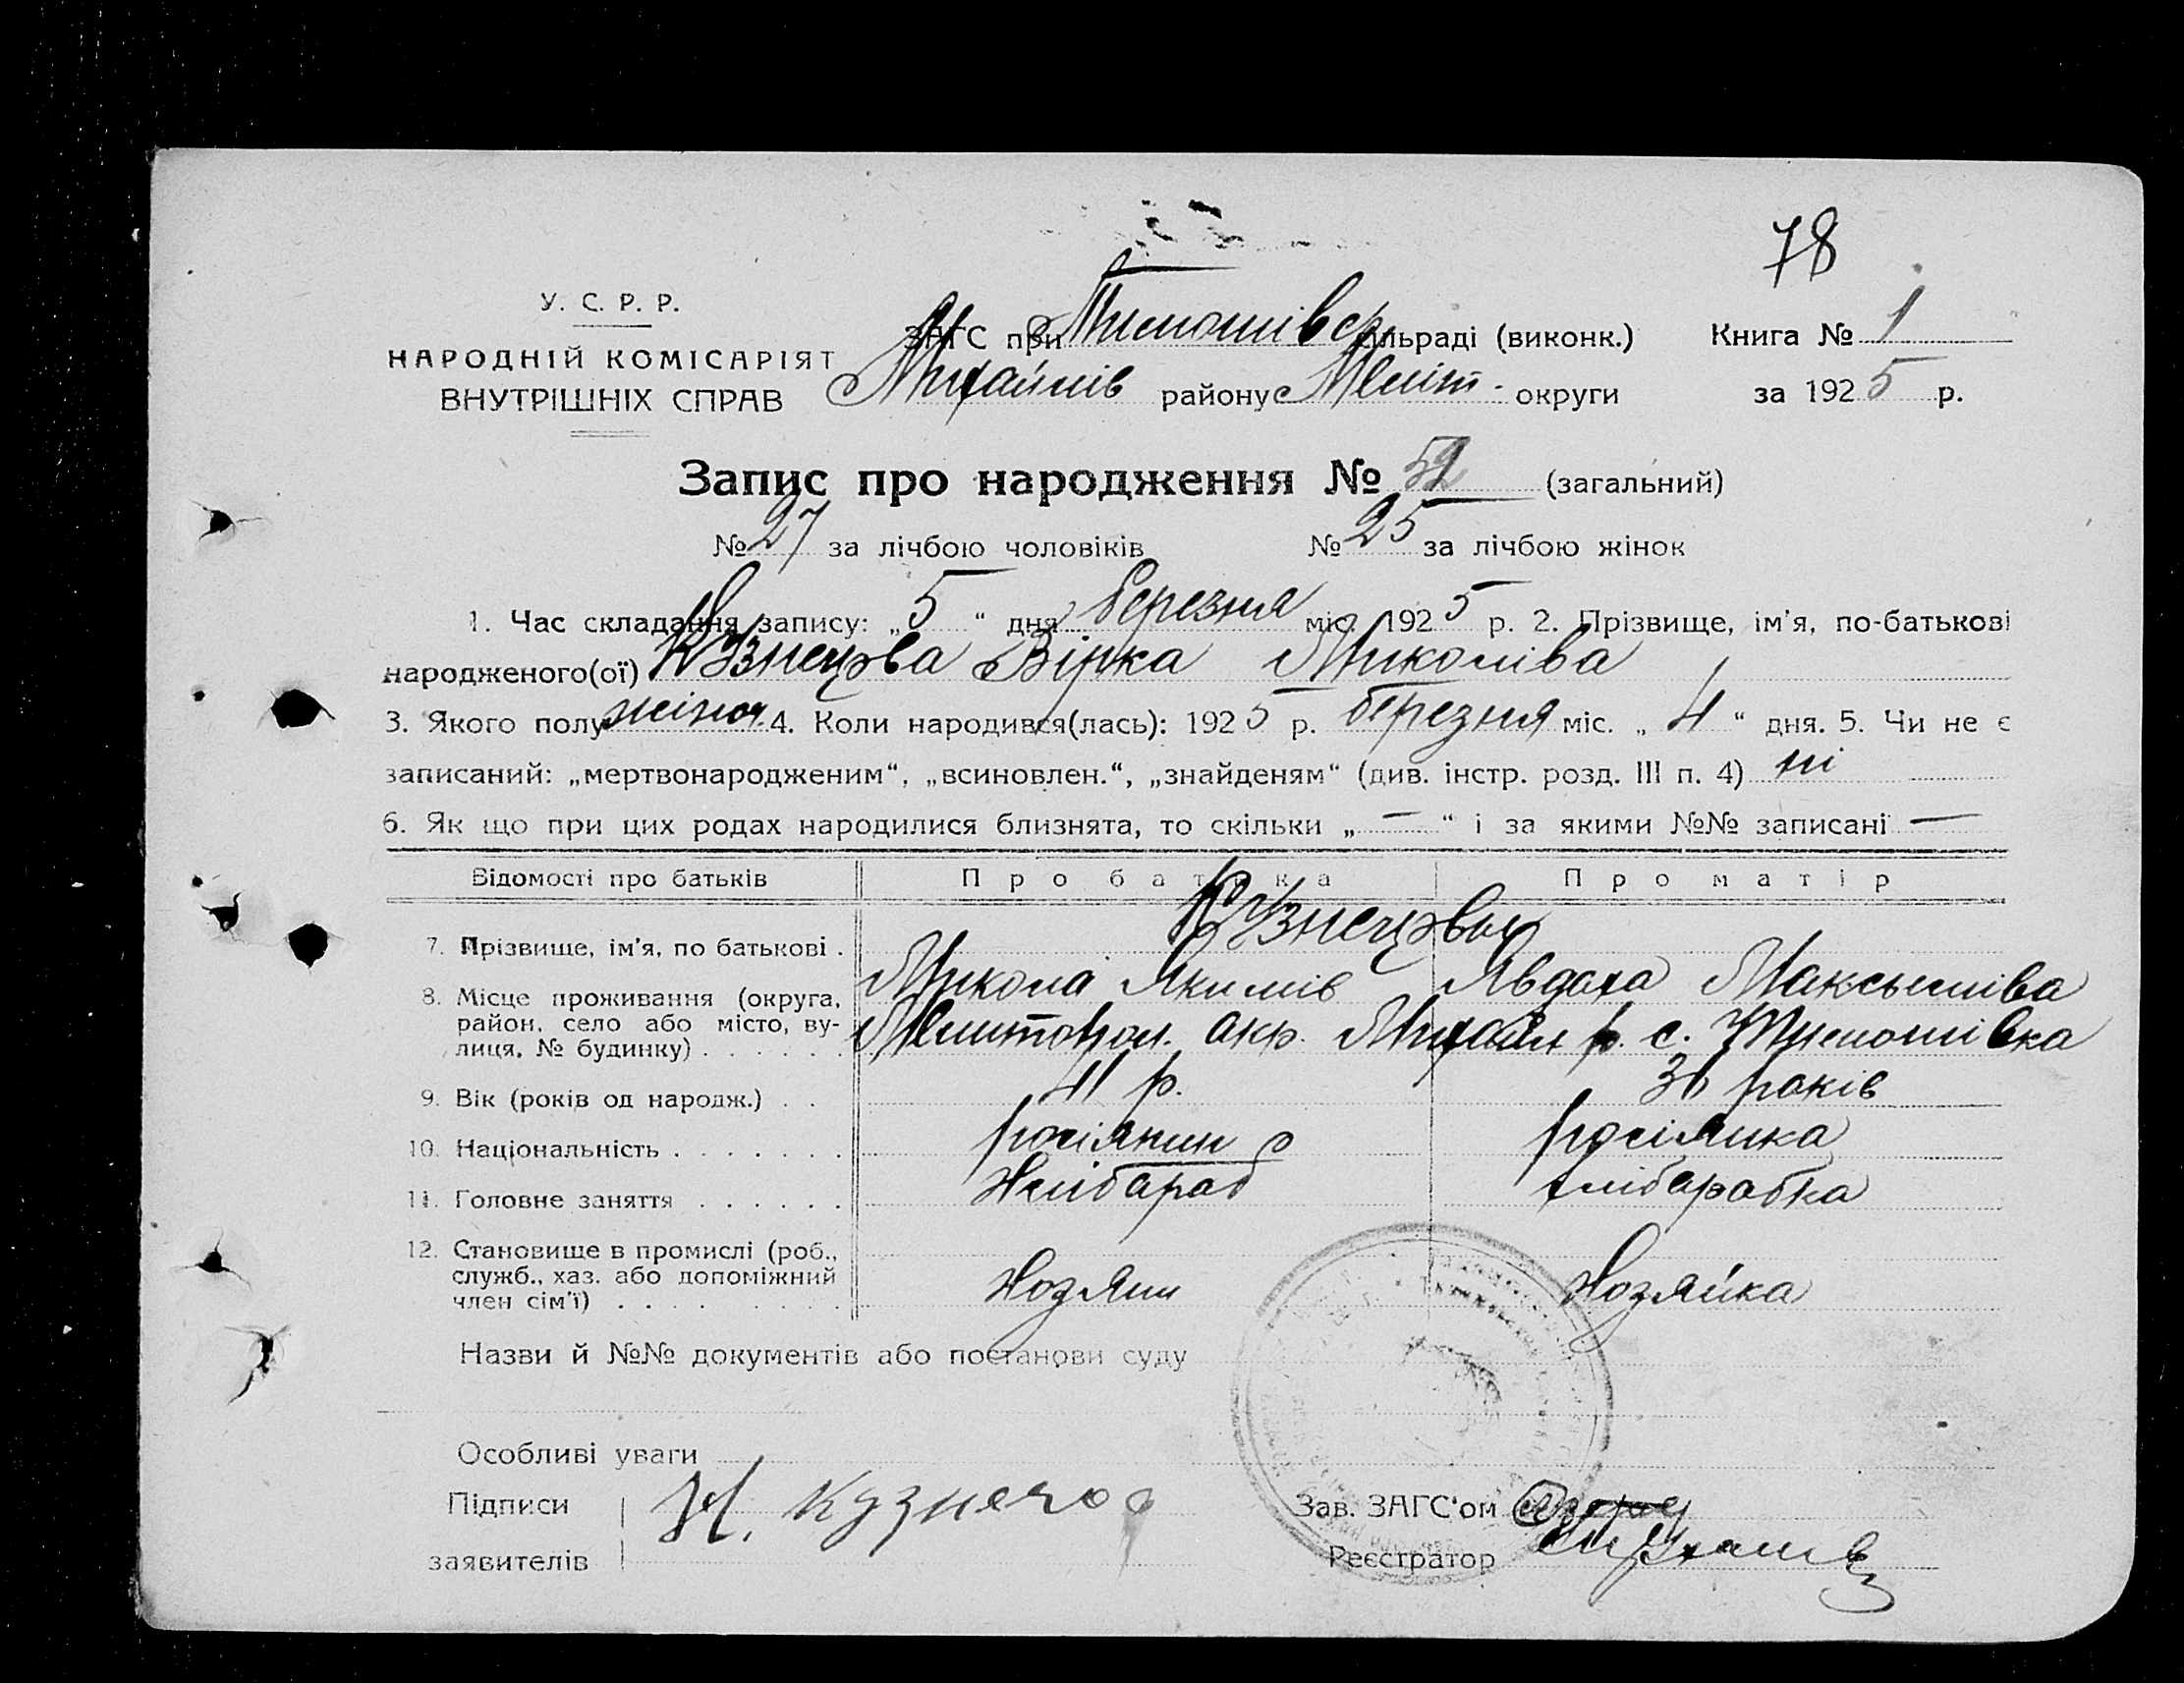 78
У. С. Р. Р.
НАРОДНІЙ КОМІСАРІЯТ
ВНУТРІШНІХ СПРАВ
ЗАГС при Тимошівср. сільраді (виконк.) Книга № 1
Михайлів району Меліт. округи за 1925 р.
Запис про народження № 52 (загальний)
№ 27 за лічбою чоловіків № 25 за лічбою жінок
1. Час складання запису: „5“ дня березня міс. 1925 р. 2. Прізвище, ім'я, по-батькові
народженого(ої) Кузнецова Вірка Миколіва
3. Якого полу жіноч. 4. Коли народився(лась): 1925 р. березня міс. „4“ дня. 5. Чи не є
записаний: „мертвонародженим“, „всиновлен.“, „знайденям“ (див. інстр. розд. III п. 4) ні
6. Як що при цих родах народилися близнята, то скільки „—“ і за якими №№ записані —
Відомості про батьків Про батька Про матір
Кузнецови
7. Прізвище, ім'я, по батькові . Микола Якимів Явдоха Максымів​а
8. Місце проживання (округа,
район, село або місто, ву-
лиця, № будинку) . . . . . . Мелитопол. окр. Михайл р. с. Тимошівка
9. Вік (років од народж.) . . 41 р. 36 років
10. Національність . . . . . . . росіянин росіянка
11. Головне заняття . . . . . . Хлібороб хлібаробка
12. Становище в промислі (роб.,
служб., хаз. або допоміжний
член сім'ї) . . . . . . . . . Хозяин Хозяйка
Назви й №№ документів або постанови суду
Особливі уваги
Підписи
заявителів Н. Кузнецов
Зав. ЗАГС'ом
Реєстратор